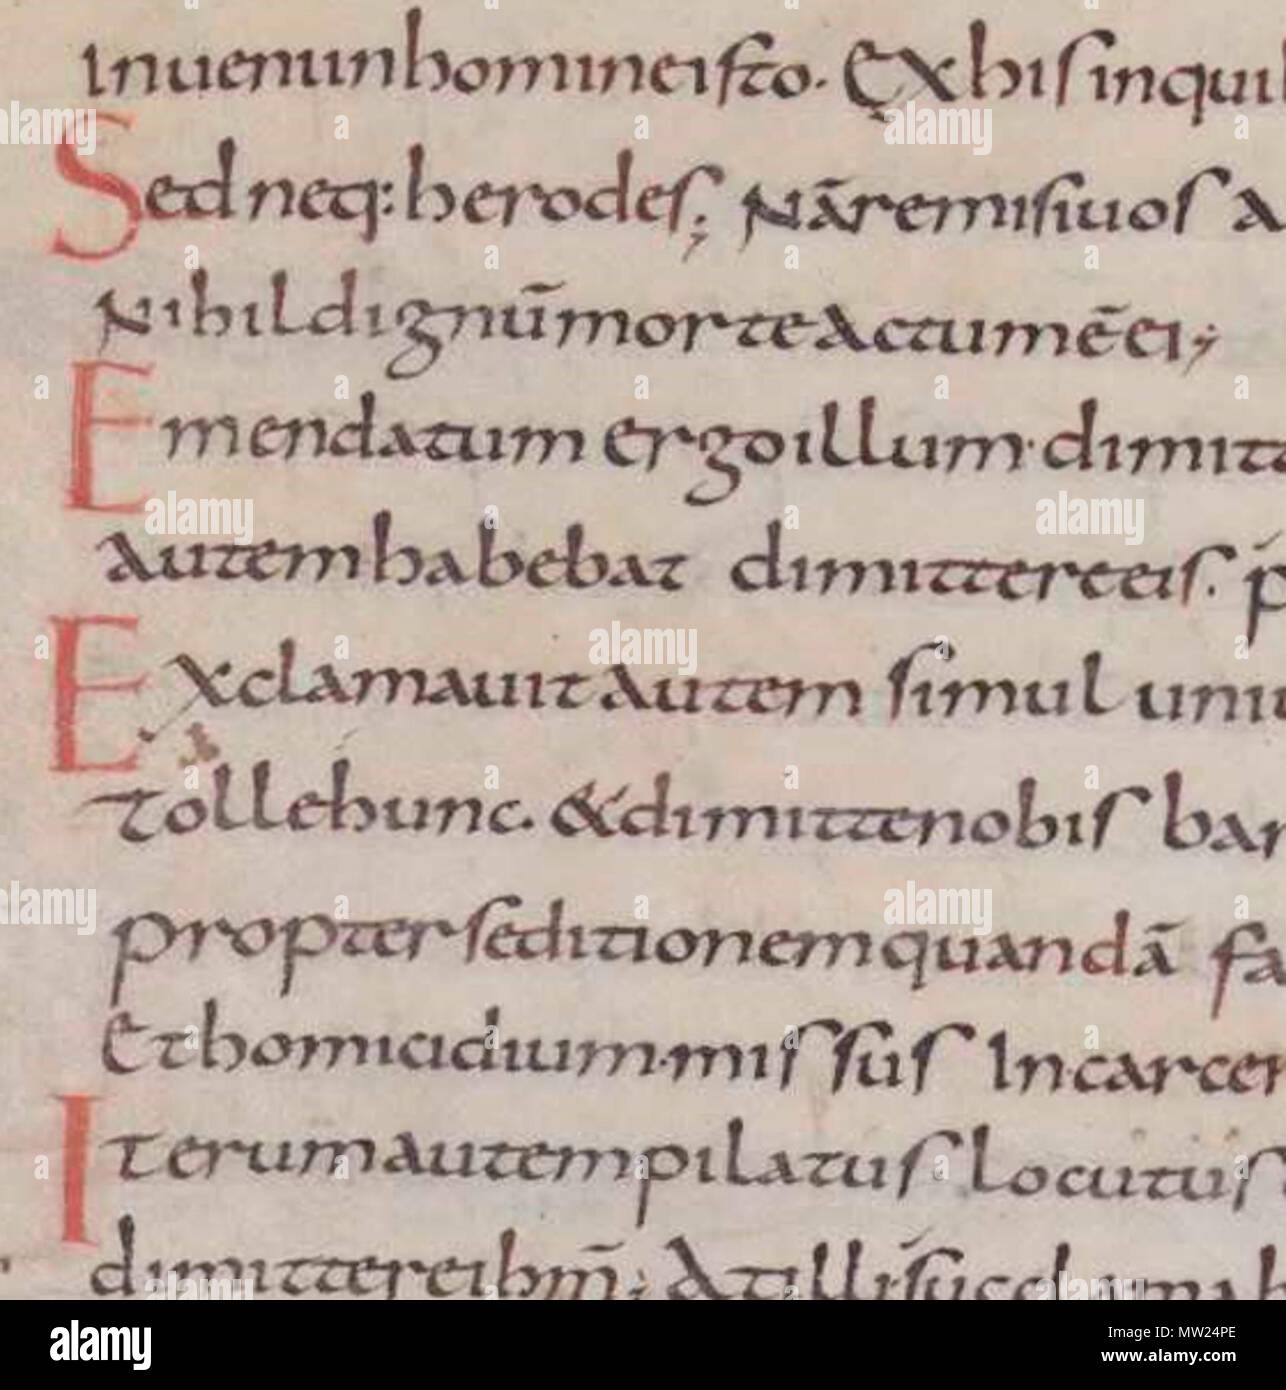 inueni in homine isto. Ex his in qui
Sed neq: herodes; Nā remisi uos a
Nihil dignū morte actum ē ei;
Emendatum ergo illum. dimitt
autem habebat dimittere eis. p
Exclamauit autem simul uniu
Tolle hunc. & dimitte nobis bar
propter seditionem quandā fa
Et homicidium. missus In carcer
Iterum autem pilatus locutus
dimittere ihm̄; At illi succlamab
a alamy
MW24PE
www.alamy.com